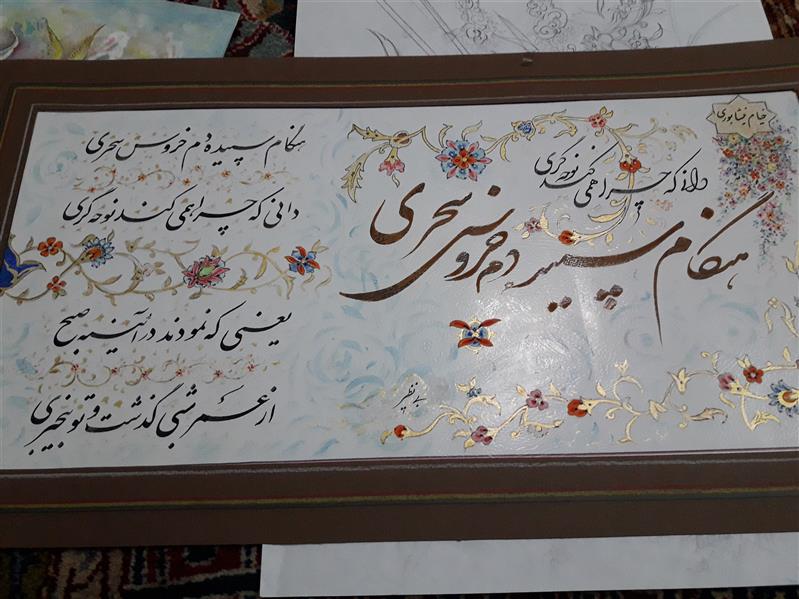 خیام نیشابوری
دانی که چرا همی کند نوحه گری
هنگام سپیده دم خروس سحری
بی نظیر
هنگام سپیده دم خروس سحری
دانی که چرا همی کند نوحه گری
یعنی که نمودند در آئینه صبح
از عمر شبی گذشت و تو بیخبری